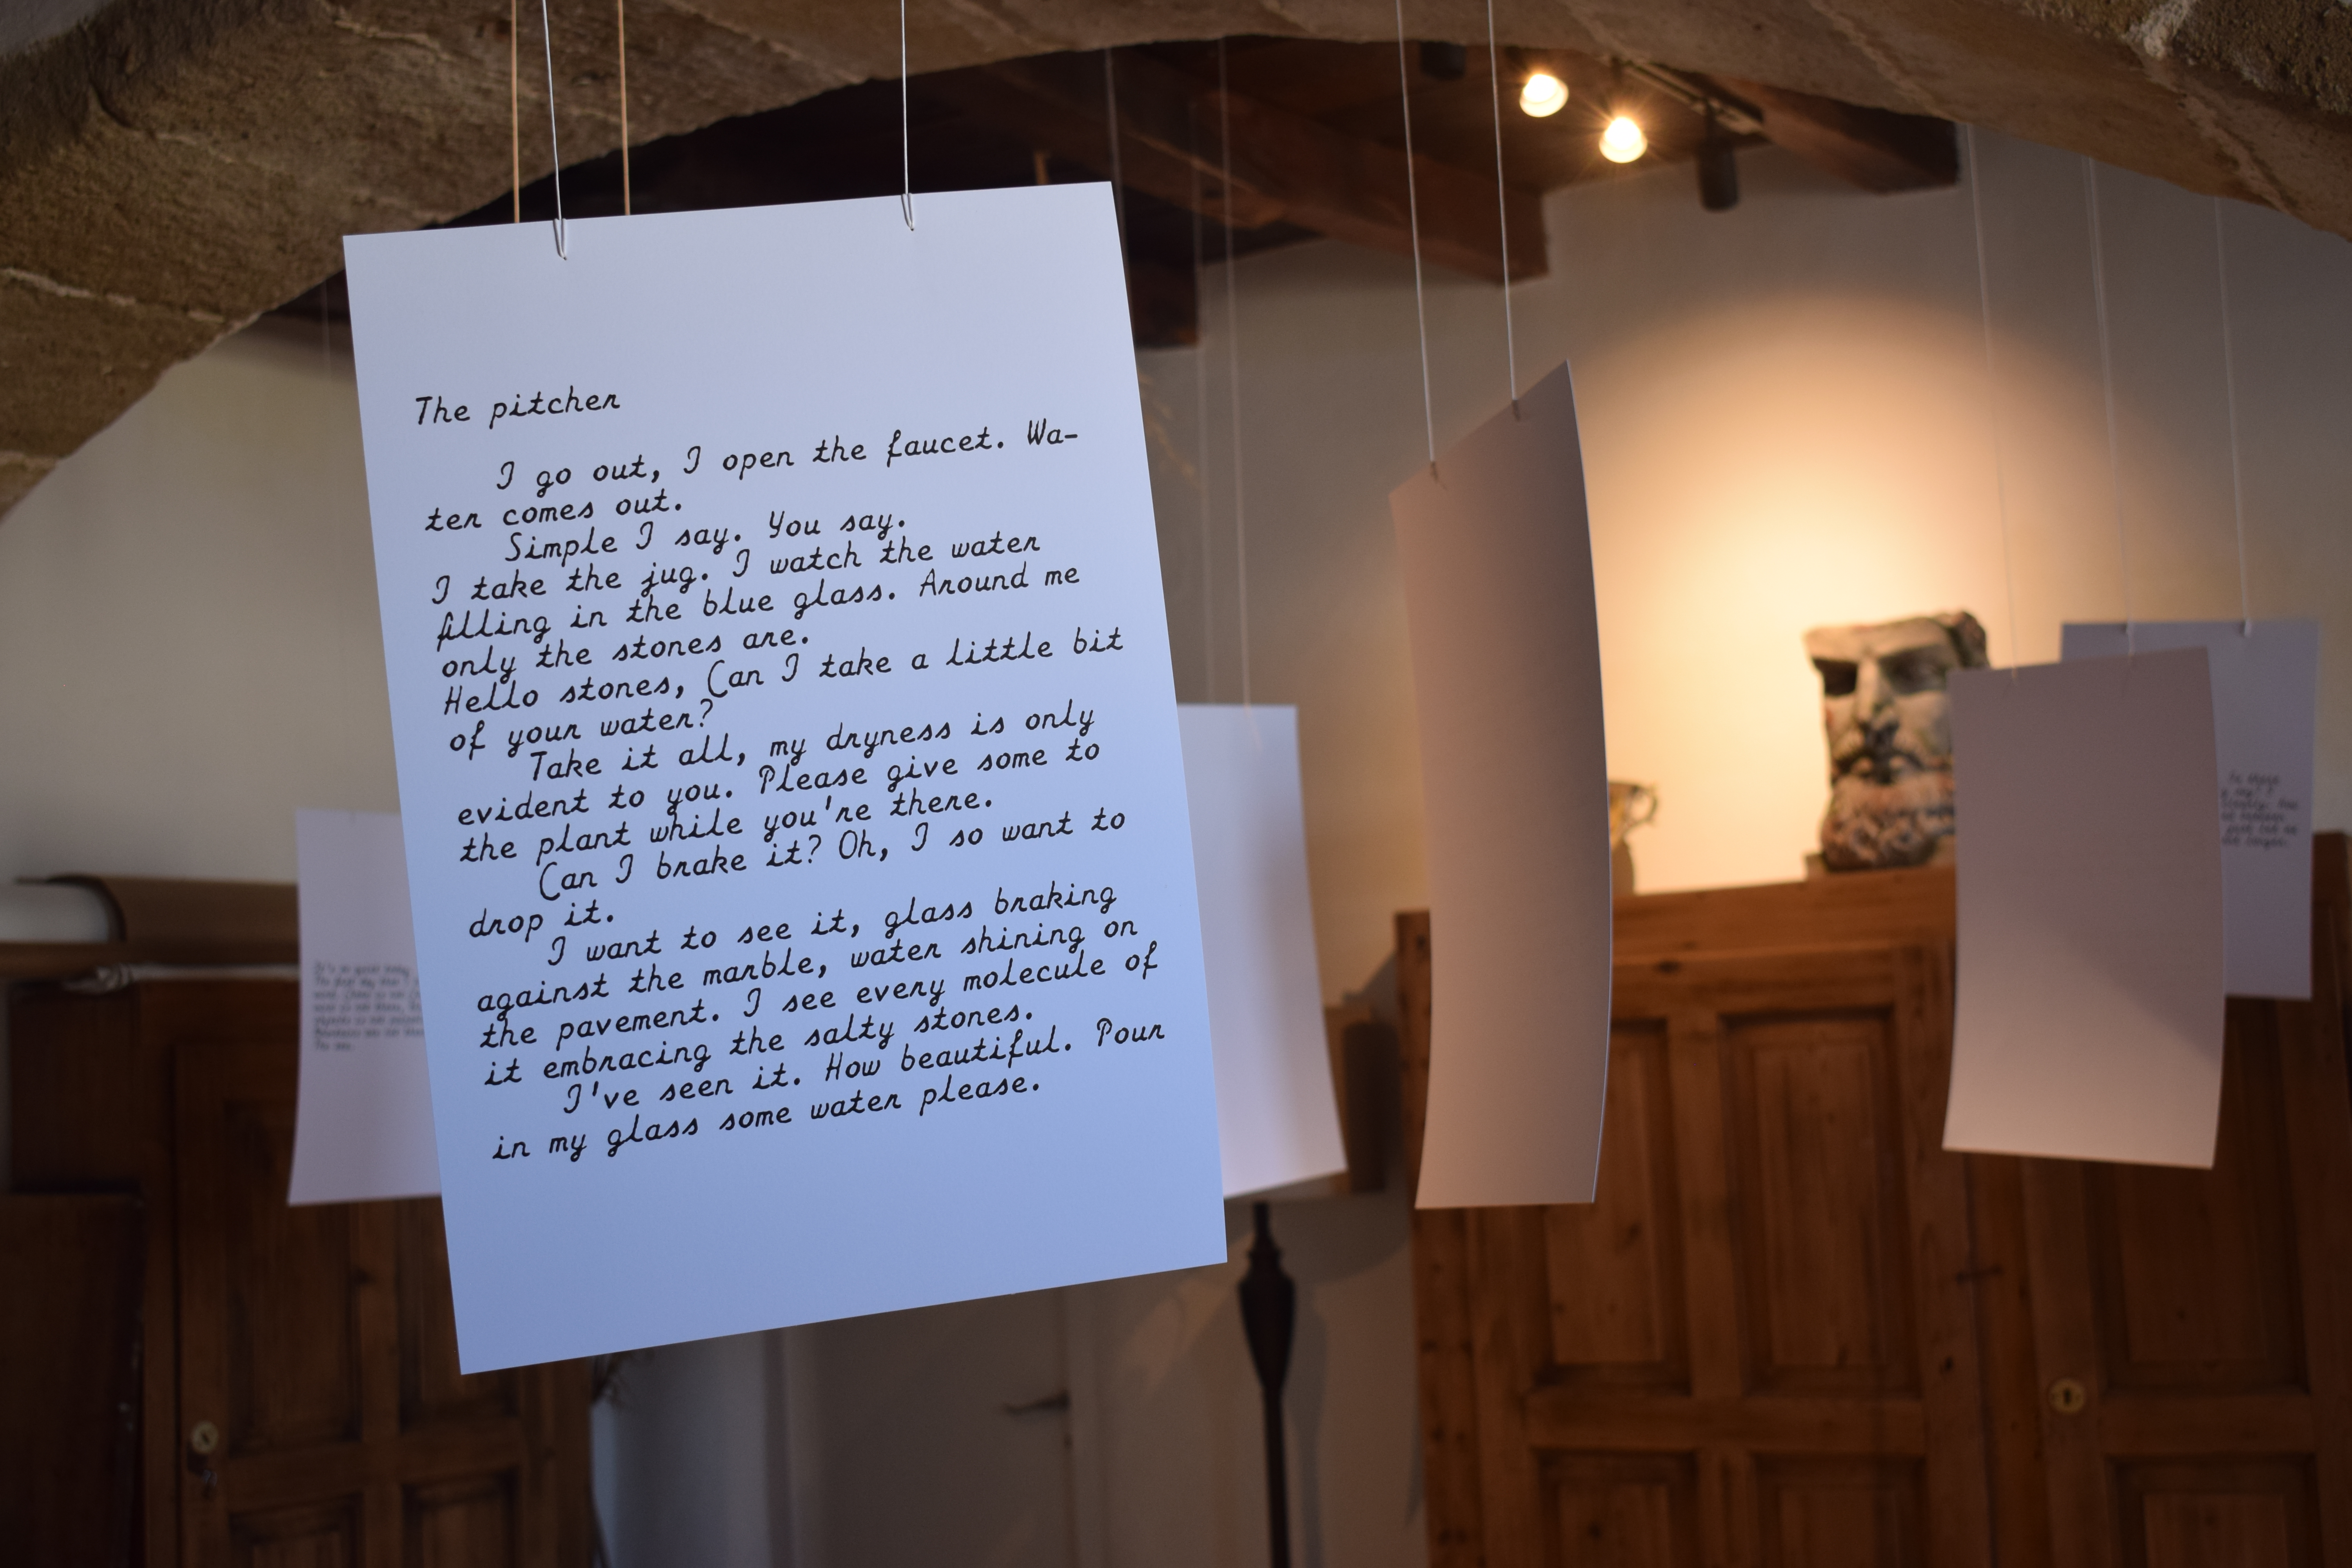 The pitcher
I go out, I open the faucet. Wa-
ter comes out.
Simple I say. You say.
I take the jug. I watch the water
filling in the blue glass. Around me
only the stones are.
Hello stones, Can I take a little bit
of your water?
Take it all, my dryness is only
evident to you. Please give some to
the plant while you're there.
Can I brake it? Oh, I so want to
drop it.
I want to see it, glass braking
against the marble, water shining on
the pavement. I see every molecule of
it embracing the salty stones.
I've seen it. How beautiful. Pour
in my glass some water please.